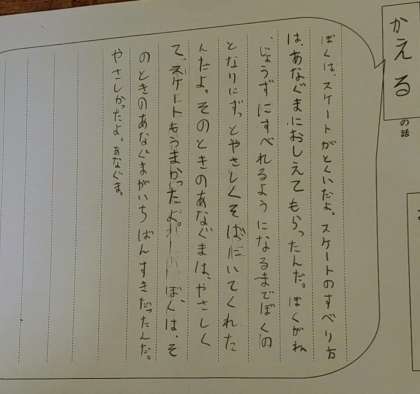 かえるの話
ぼくは、スケートがとくいだよ。スケートのすべり方
は、あなぐまにおしえてもらったんだ。ぼくがね
、じょうずにすべれるようになるまでぼくの
となりにずっとやさしくそばにいてくれた
んだよ。そのときのあなぐまは、やさしく
て、スケートもうまかったよ。ぼくは、そ
のときのあなぐまがいちばんすきだったんだ。
やさしかったよ。あなぐま。